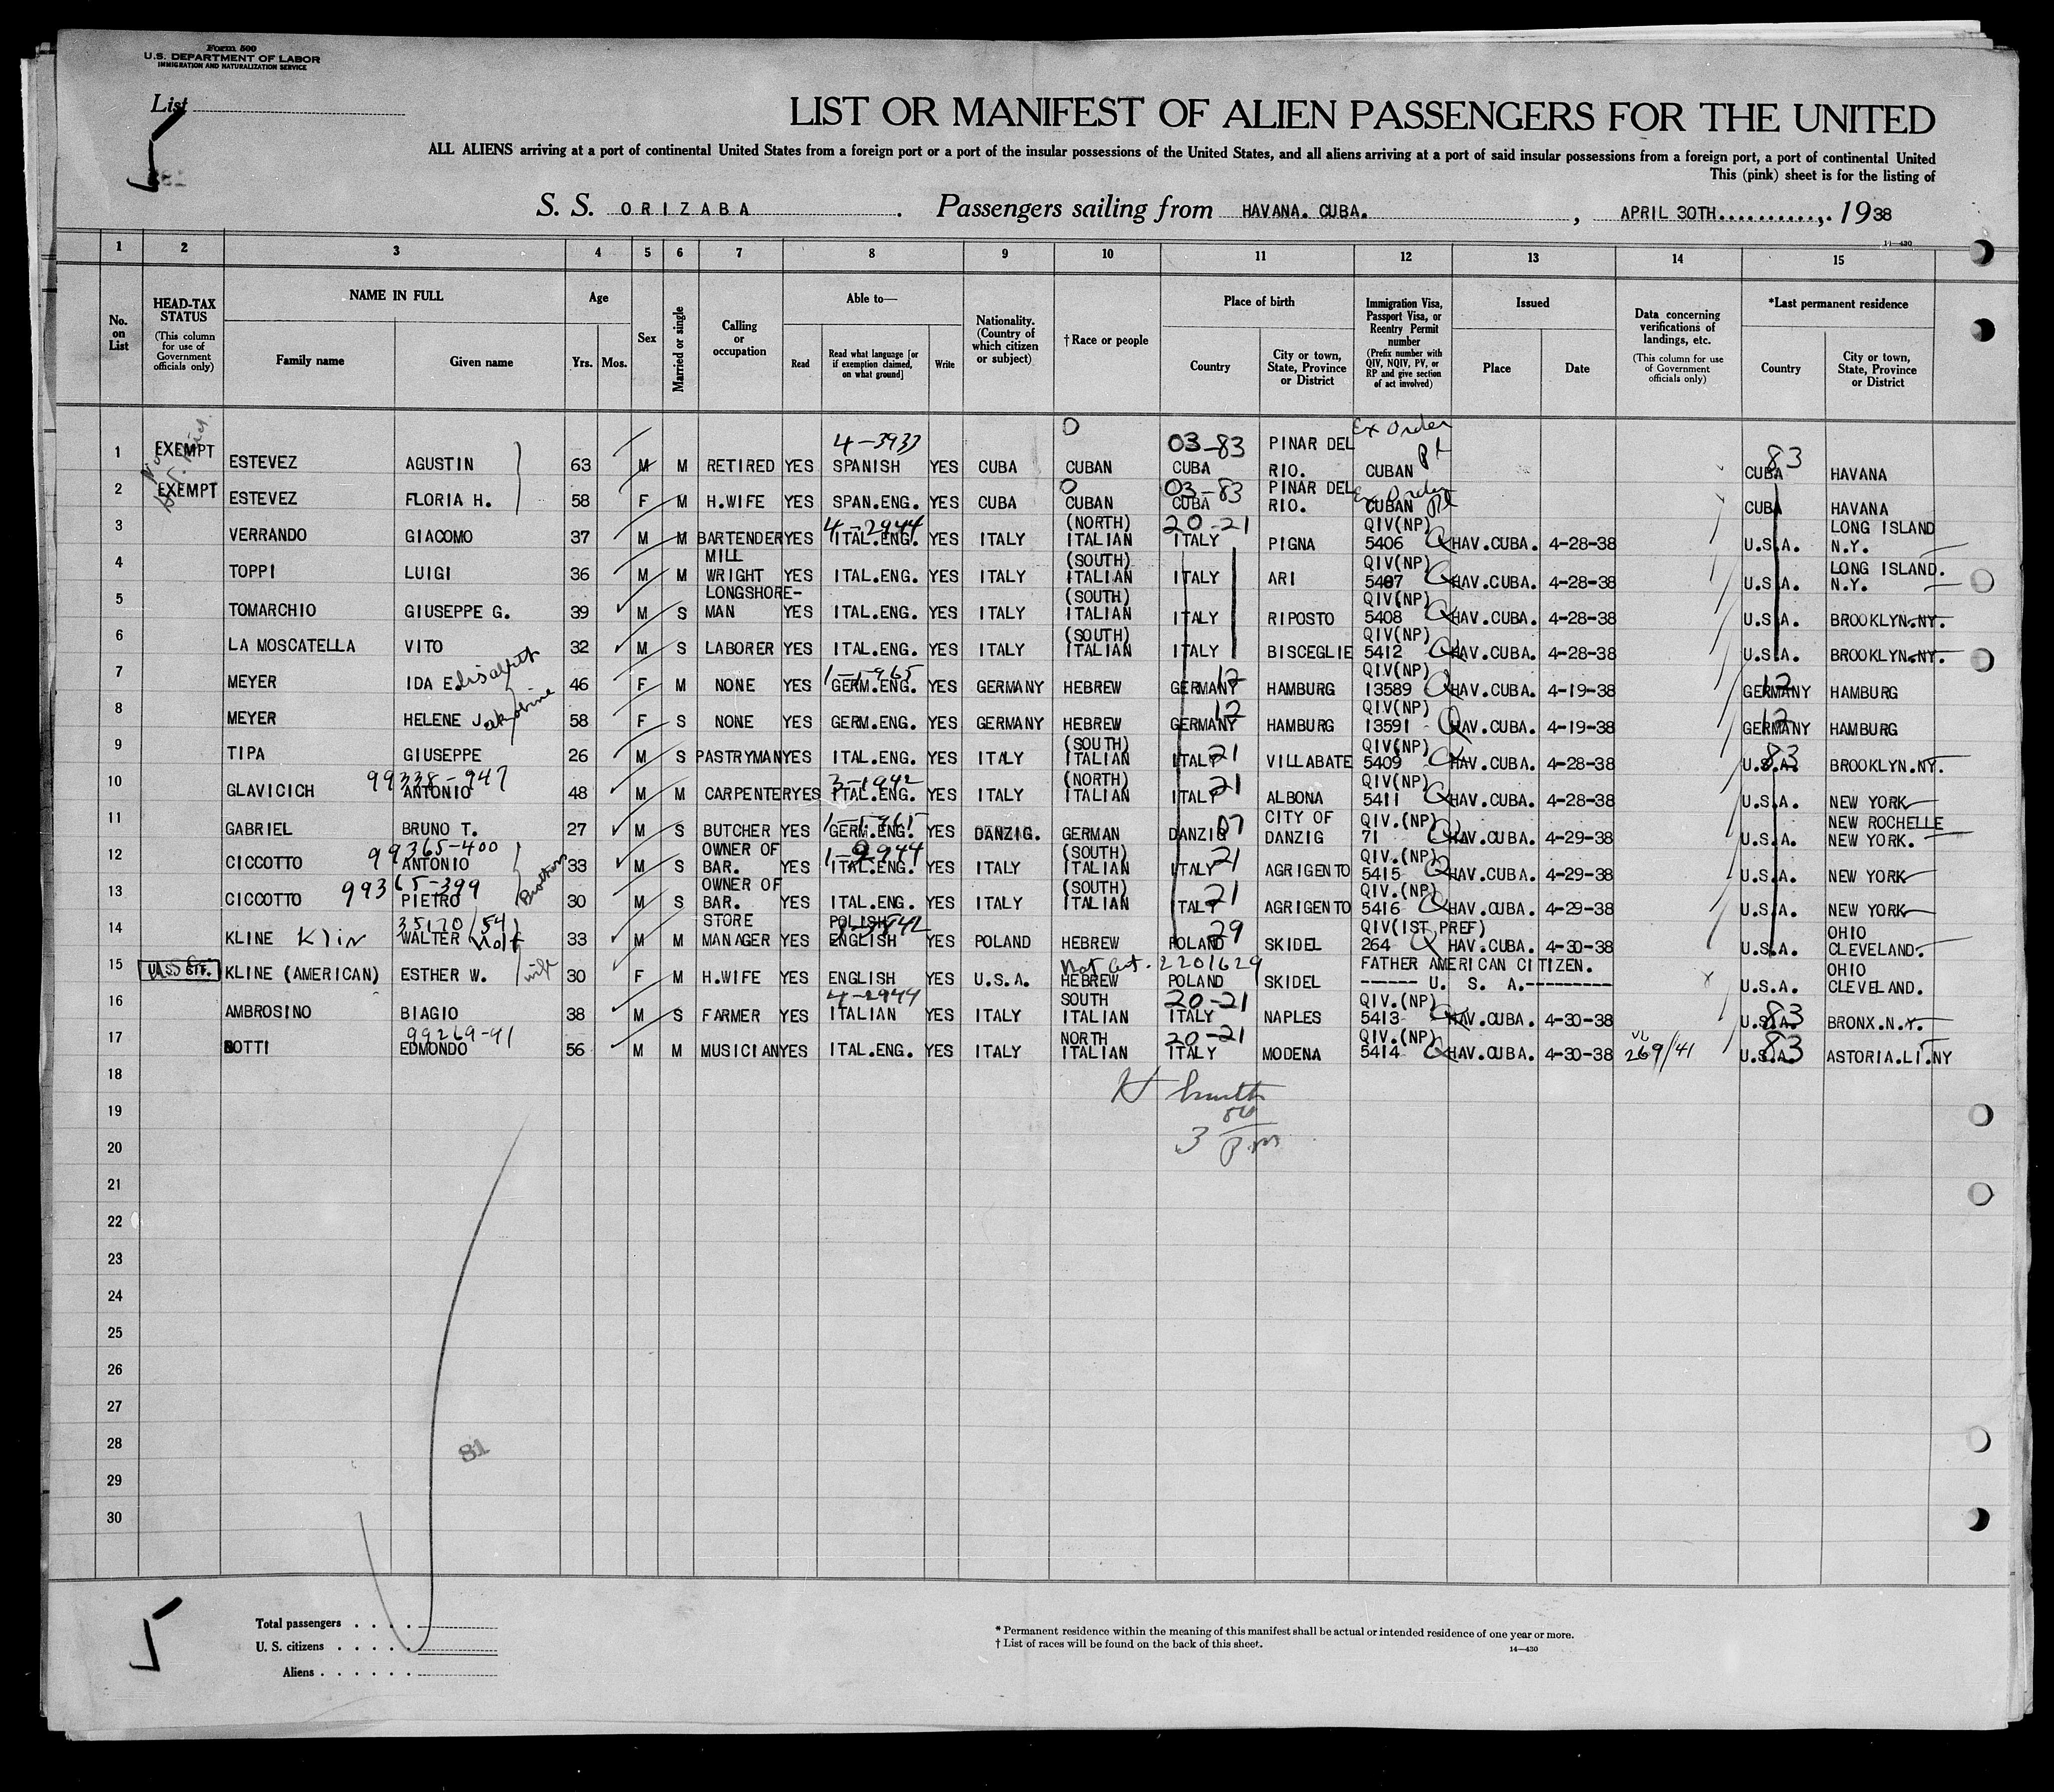 Form 500
U.S. DEPARTMENT OF LABOR
IMMIGRATION AND NATURALIZATION SERVICE
List
LIST OR MANIFEST OF ALIEN PASSENGERS FOR THE UNITED
ALL ALIENS arriving at a port of continental United States from a foreign port or a port of the insular possessions of the United States, and all aliens arriving at a port of said insular possessions from a foreign port, a port of continental United
This (pink) sheet is for the listing of
S. S. ORIZABA. Passengers sailing from HAVANA. CUBA., APRIL 30TH..........., 1938
14—430
1 2 3 4 5 6 7 8 9 10 11 12 13 14 15
No. on List
HEAD-TAX STATUS (This column for use of Government officials only)
NAME IN FULL
Family name Given name
Age
Yrs. Mos.
Sex
Married or single
Calling or occupation
Able to—
Read Read what language [or if exemption claimed, on what ground] Write
Nationality. (Country of which citizen or subject)
†Race or people
Place of birth
Country City or town, State, Province or District
Immigration Visa, Passport Visa, or Reentry Permit number (Prefix number with QIV, NQIV, PV, or RP and give section of act involved)
Issued
Place Date
Data concerning verifications of landings, etc. (This column for use of Government officials only)
*Last permanent residence
Country City or town, State, Province or District
4-3933 03-83 PINAR DEL Ex Order 83
1 EXEMPT ESTEVEZ AGUSTIN 63 M M RETIRED YES SPANISH YES CUBA CUBAN CUBA RIO. CUBAN CUBA HAVANA
03-83 PINAR DEL Ex Order
2 EXEMPT ESTEVEZ FLORIA H. 58 F M H.WIFE YES SPAN.ENG. YES CUBA CUBAN CUBA RIO. CUBAN CUBA HAVANA
4-2944 (NORTH) 20-21 QIV(NP) LONG ISLAND
3 VERRANDO GIACOMO 37 M M BARTENDER YES ITAL.ENG. YES ITALY ITALIAN ITALY PIGNA 5406 HAV.CUBA. 4-28-38 U.S.A. N.Y.
MILL (SOUTH) QIV(NP) LONG ISLAND.
4 TOPPI LUIGI 36 M M WRIGHT YES ITAL.ENG. YES ITALY ITALIAN ITALY ARI 5407 HAV.CUBA. 4-28-38 U.S.A. N.Y.
LONGSHORE- (SOUTH) QIV(NP)
5 TOMARCHIO GIUSEPPE G. 39 M S MAN YES ITAL.ENG. YES ITALY ITALIAN ITALY RIPOSTO 5408 HAV.CUBA. 4-28-38 U.S.A. BROOKLYN.NY.
(SOUTH) QIV(NP)
6 LA MOSCATELLA VITO 32 M S LABORER YES ITAL.ENG. YES ITALY ITALIAN ITALY BISCEGLIE 5412 HAV.CUBA. 4-28-38 U.S.A. BROOKLYN.NY.
12 QIV(NP) 12
7 MEYER IDA Elisabeth 46 F M NONE YES GERM.ENG. YES GERMANY HEBREW GERMANY HAMBURG 13589 HAV.CUBA. 4-19-38 GERMANY HAMBURG
12 QIV(NP) 12
8 MEYER HELENE Jakobine 58 F S NONE YES GERM.ENG. YES GERMANY HEBREW GERMANY HAMBURG 13591 HAV.CUBA. 4-19-38 GERMANY HAMBURG
(SOUTH) 21 QIV(NP) 83
9 TIPA GIUSEPPE 26 M S PASTRYMAN YES ITAL.ENG. YES ITALY ITALIAN ITALY VILLABATE 5409 HAV.CUBA. 4-28-38 U.S.A. BROOKLYN.NY.
99338-947 3-1942 (NORTH) 21 QIV(NP)
10 GLAVICICH ANTONIO 48 M M CARPENTER YES ITAL.ENG. YES ITALY ITALIAN ITALY ALBONA 5411 HAV.CUBA. 4-28-38 U.S.A. NEW YORK
07 CITY OF QIV.(NP) NEW ROCHELLE
11 GABRIEL BRUNO T. 27 M S BUTCHER YES GERM.ENG. YES DANZIG. GERMAN DANZIG DANZIG 71 HAV.CUBA. 4-29-38 U.S.A. NEW YORK.
99365-400 OWNER OF 1-2944 (SOUTH) 21 QIV.(NP)
12 CICCOTTO ANTONIO Brothers 33 M S BAR. YES ITAL.ENG. YES ITALY ITALIAN ITALY AGRIGENTO 5415 HAV.CUBA. 4-29-38 U.S.A. NEW YORK
99365-399 OWNER OF (SOUTH) 21 QIV.(NP)
13 CICCOTTO PIETRO 30 M S BAR. YES ITAL.ENG. YES ITALY ITALIAN ITALY AGRIGENTO 5416 HAV.CUBA. 4-29-38 U.S.A. NEW YORK
35170/541 STORE POLISH 29 QIV(IST PREF) OHIO
14 KLINE Klin WALTER Wolf 33 M M MANAGER YES ENGLISH YES POLAND HEBREW POLAND SKIDEL 264 HAV.CUBA. 4-30-38 U.S.A. CLEVELAND.
Nat Cert. 2201629 FATHER AMERICAN CITIZEN. OHIO
15 KLINE (AMERICAN) ESTHER W. wife 30 F M H.WIFE YES ENGLISH YES U.S.A. HEBREW POLAND SKIDEL ------ U. S. A.--------- U.S.A. CLEVELAND.
4-2944 SOUTH 20-21 QIV.(NP) 83
16 AMBROSINO BIAGIO 38 M S FARMER YES ITALIAN YES ITALY ITALIAN ITALY NAPLES 5413 HAV.CUBA. 4-30-38 U.S.A. BRONX.N.Y.
99269-41 NORTH 20-21 QIV.(NP) 83
17 BOTTI EDMONDO 56 M M MUSICIAN YES ITAL.ENG. YES ITALY ITALIAN ITALY MODENA 5414 HAV.CUBA. 4-30-38 269/41 U.S.A. ASTORIA.LI.NY
18
19
20
21
22
23
24
25
26
27
28
81
29
30
Total passengers
U. S. citizens
Aliens
* Permanent residence within the meaning of this manifest shall be actual or intended residence of one year or more.
† List of races will be found on the back of this sheet.
14—430
5